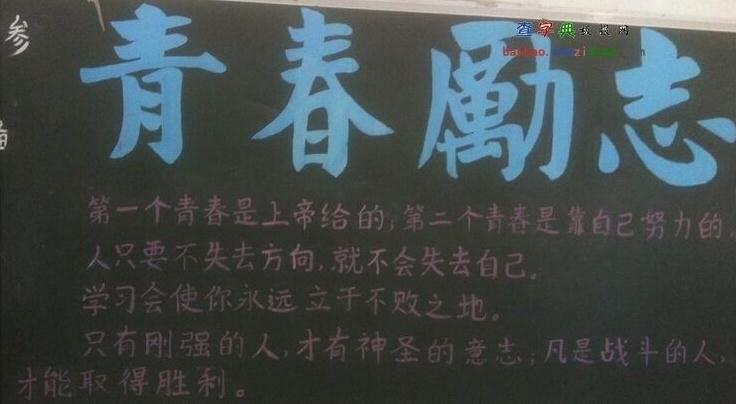 参
查字典板报网
青春勵志
第一个青春是上帝给的;第二个青春是靠自己努力的,
人只要不失去方向,就不会失去自己。
学习会使你永远立于不败之地。
只有刚强的人,才有神圣的意志;凡是战斗的人,
才能取得胜利。